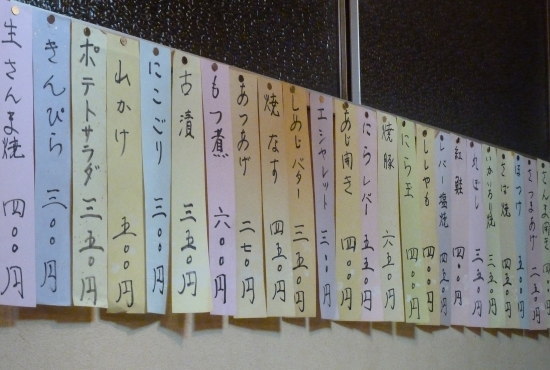 生さんま焼 四〇〇円
きんぴら 三〇〇円
ポテトサラダ 三五〇円
山かけ 五〇〇円
にこごり 三〇〇円
古漬 三五〇円
もつ煮 六〇〇円
あつあげ 二七〇円
焼なす 四五〇円
しめじバター 三五〇円
エシャレット 三〇〇円
あじ開き 四〇〇円
にらレバー 五五〇円
焼豚 六五〇円
にら玉 四〇〇円
ししゃも 四〇〇円
レバー塩焼 四五〇円
紅鮭 四〇〇円
丸ぼし 三五〇円
いか丸焼 三五〇円
さば焼 四五〇円
ほっけ 五〇〇円
さつまあげ 二五〇円
さんま開き 四〇〇円